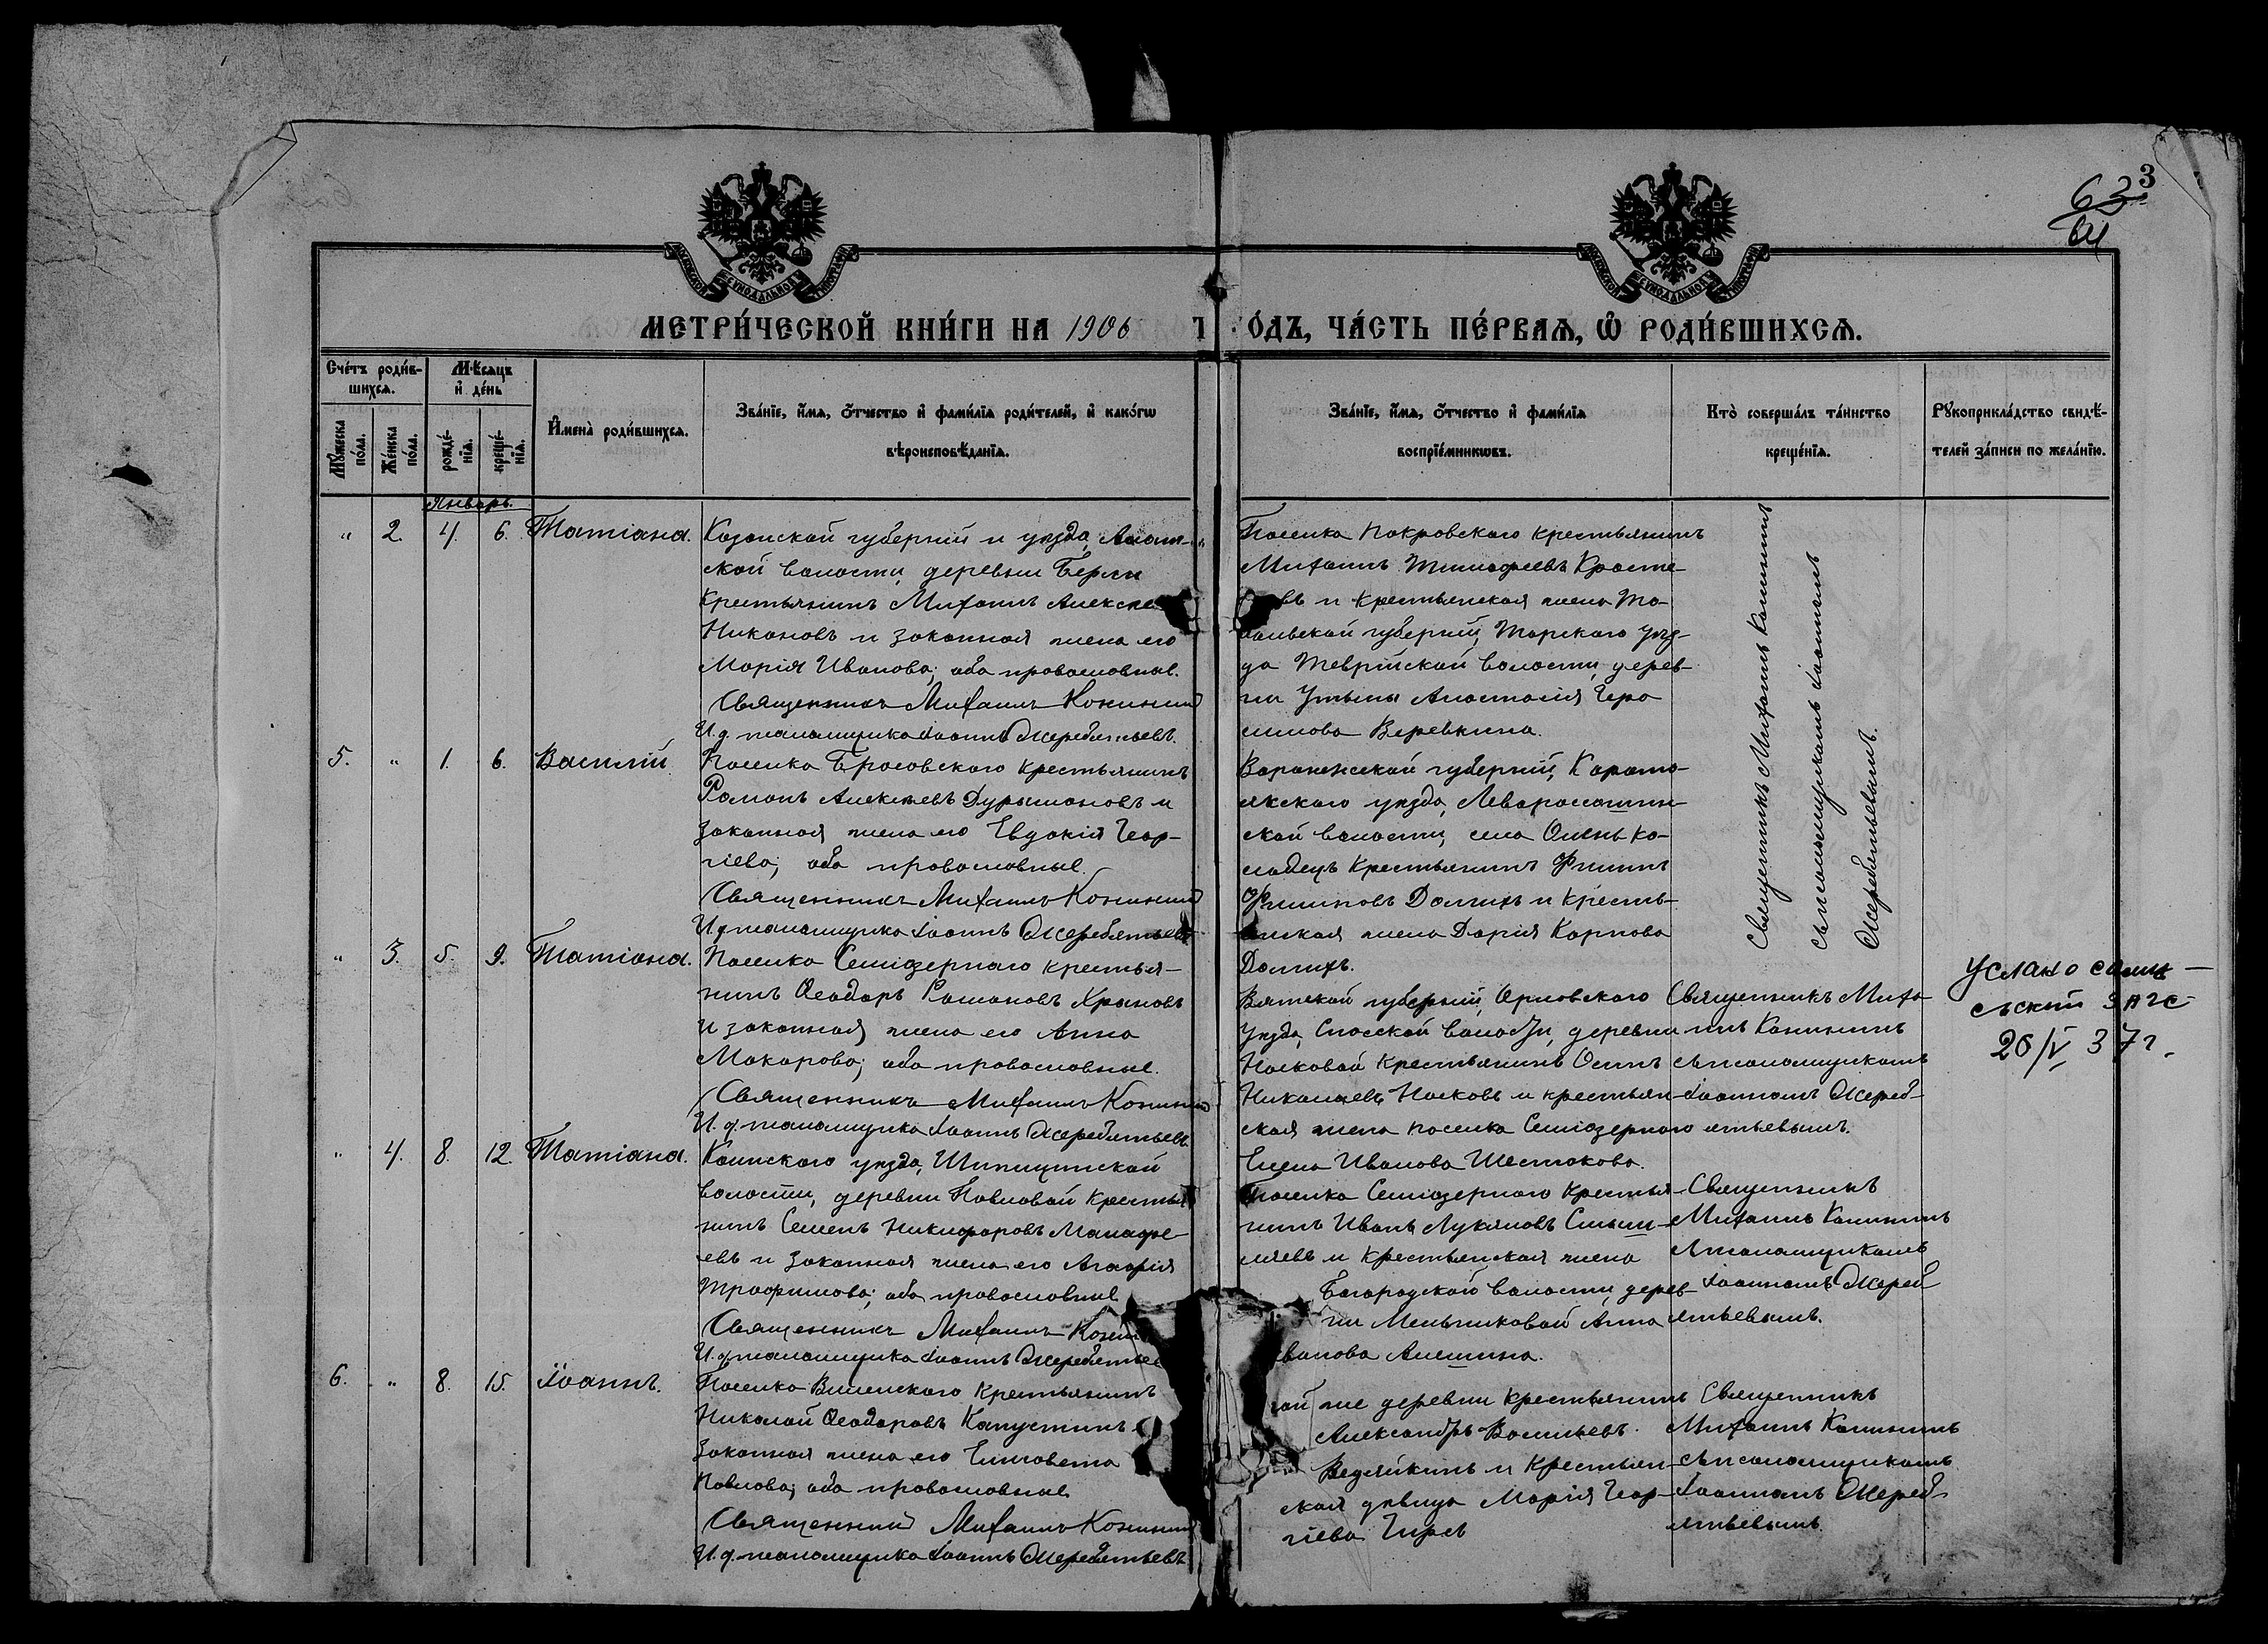 3
63
64
МЕТРИ́ЧЕСКОЙ КНИ́ГИ НА 1906 Г ОДЪ, ЧА́СТЬ ПЕ́РВАЯ, Ѡ РОДИ́ВШИХСЯ.
Сче́тъ роди́в-
шихся.
Мужеска по́ла.
Же́нска по́ла.
Мѣ́сяцъ
и де́нь
рожде́-
нїя.
креще́-
нїя.
Имена̀ роди́вшихся.
Зва́нїе, и́мя, о́тчество и фами́лїя роди́телей, и како́гѡ
вѣроисповѣ́данїя.
Зва́нїе, и́мя, о́тчество и фами́лїя
воспрїе́мникѡвъ.
Кто̀ соверша́лъ та́инство
креще́нїя.
Рукоприкла́дство свидѣ́-
телей за́писи по жела́нїю.
Январь.
" 2. 4. 6. Татіана.
Казанской губерніи и уѣзда,
ской волости, деревни
крестьянинъ Михаилъ Алексѣе
Никоновъ и законная жена его
Марія Иванова; оба православные.
Священникъ Михаилъ Конининъ
И. д. псаломщика Іоаннъ Жеребятьевъ.
Поселка Покровскаго крестьянинъ
Михаилъ Тимофеевъ Красте-
въ и крестьянская жена То-
больской губерніи, Тарскаго уѣз-
да Тевризской волости, дерев-
ни Утьмы Анастасія Гера
симова Веревкина.
Священникъ Михаилъ Конининъ
съ псаломщикомъ Іоанномъ
Жеребятьевымъ.
5. " 1. 6. Василій
Поселка крестьянинъ
Романъ Алексѣевъ Дурымановъ и
законная жена его Евдокія Геор-
гіева; оба православные.
Священникъ Михаилъ Конинин
И.д. псаломщика Іоаннъ Жеребятьевъ
Воронежской губерніи, Корото-
якскаго уѣзда, Левороссошин-
ской волости, села Олень ко-
лодецъ крестьянинъ Филипъ
Филиповъ Долгихъ и кресть-
янская жена Дарія Карпова
Долгихъ.
" 3. 5. 9. Татіана.
Поселка Семіозернаго крестья-
нинъ Ѳеодоръ Романовъ Храновъ
и законная жена его Анна
Макарова; оба православные.
Священникъ Михаилъ Конинин
И. д. псаломщика Іоаннъ Жеребятьевъ.
Вятской губерніи, Орловскаго
уѣзда, Спасской волости, деревни
Носковой крестьянинъ Осипъ
Николаевъ Носковъ и крестьян-
ская жена поселка Семіозернаго
Елена Иванова Шестакова.
Священникъ Миха-
илъ Конининъ
съ псаломщикомъ
Іоанномъ Жереб-
ятьевымъ.
Услано
ский ЗАГС
26/V 37 г.
" 4. 8. 12. Татіана.
Каинскаго уѣзда, Шипицинской
волости, деревни Павловой крестья
нинъ Семенъ Никифоровъ Малафе-
евъ и законная жена его Агафія
Трофимова; оба православные
Священникъ Михаилъ Конин
И. д. псаломщика Іоаннъ Жеребятьев
Поселка Семіозернаго крестья-
нинъ Иванъ Лукяновъ Смыш-
ляевъ и крестьянская жена
Богородской волости, дерев-
ни Мельниковой Анна
ванова Алешина.
Священникъ
Михаилъ Конининъ
съ псаломщикомъ
Іоанномъ Жереб
ятьевымъ.
6. " 8. 15. Іоаннъ.
Поселка Виленскаго крестьянинъ
Николай Ѳеодоровъ Капустинъ
законная жена его Елисавета
Павлова; оба православные.
Священник Михаилъ Конинин
И. д. псаломщика Іоаннъ Жеребятьевъ
ой же деревни крестьянинъ
Александръ Васильевъ
Ведяйкинъ и крестьян-
ская дѣвица Марія Геор-
гіева
Священникъ
Михаилъ Конининъ
съ псаломщикомъ
Іоанномъ Жереб
ятьевымъ.